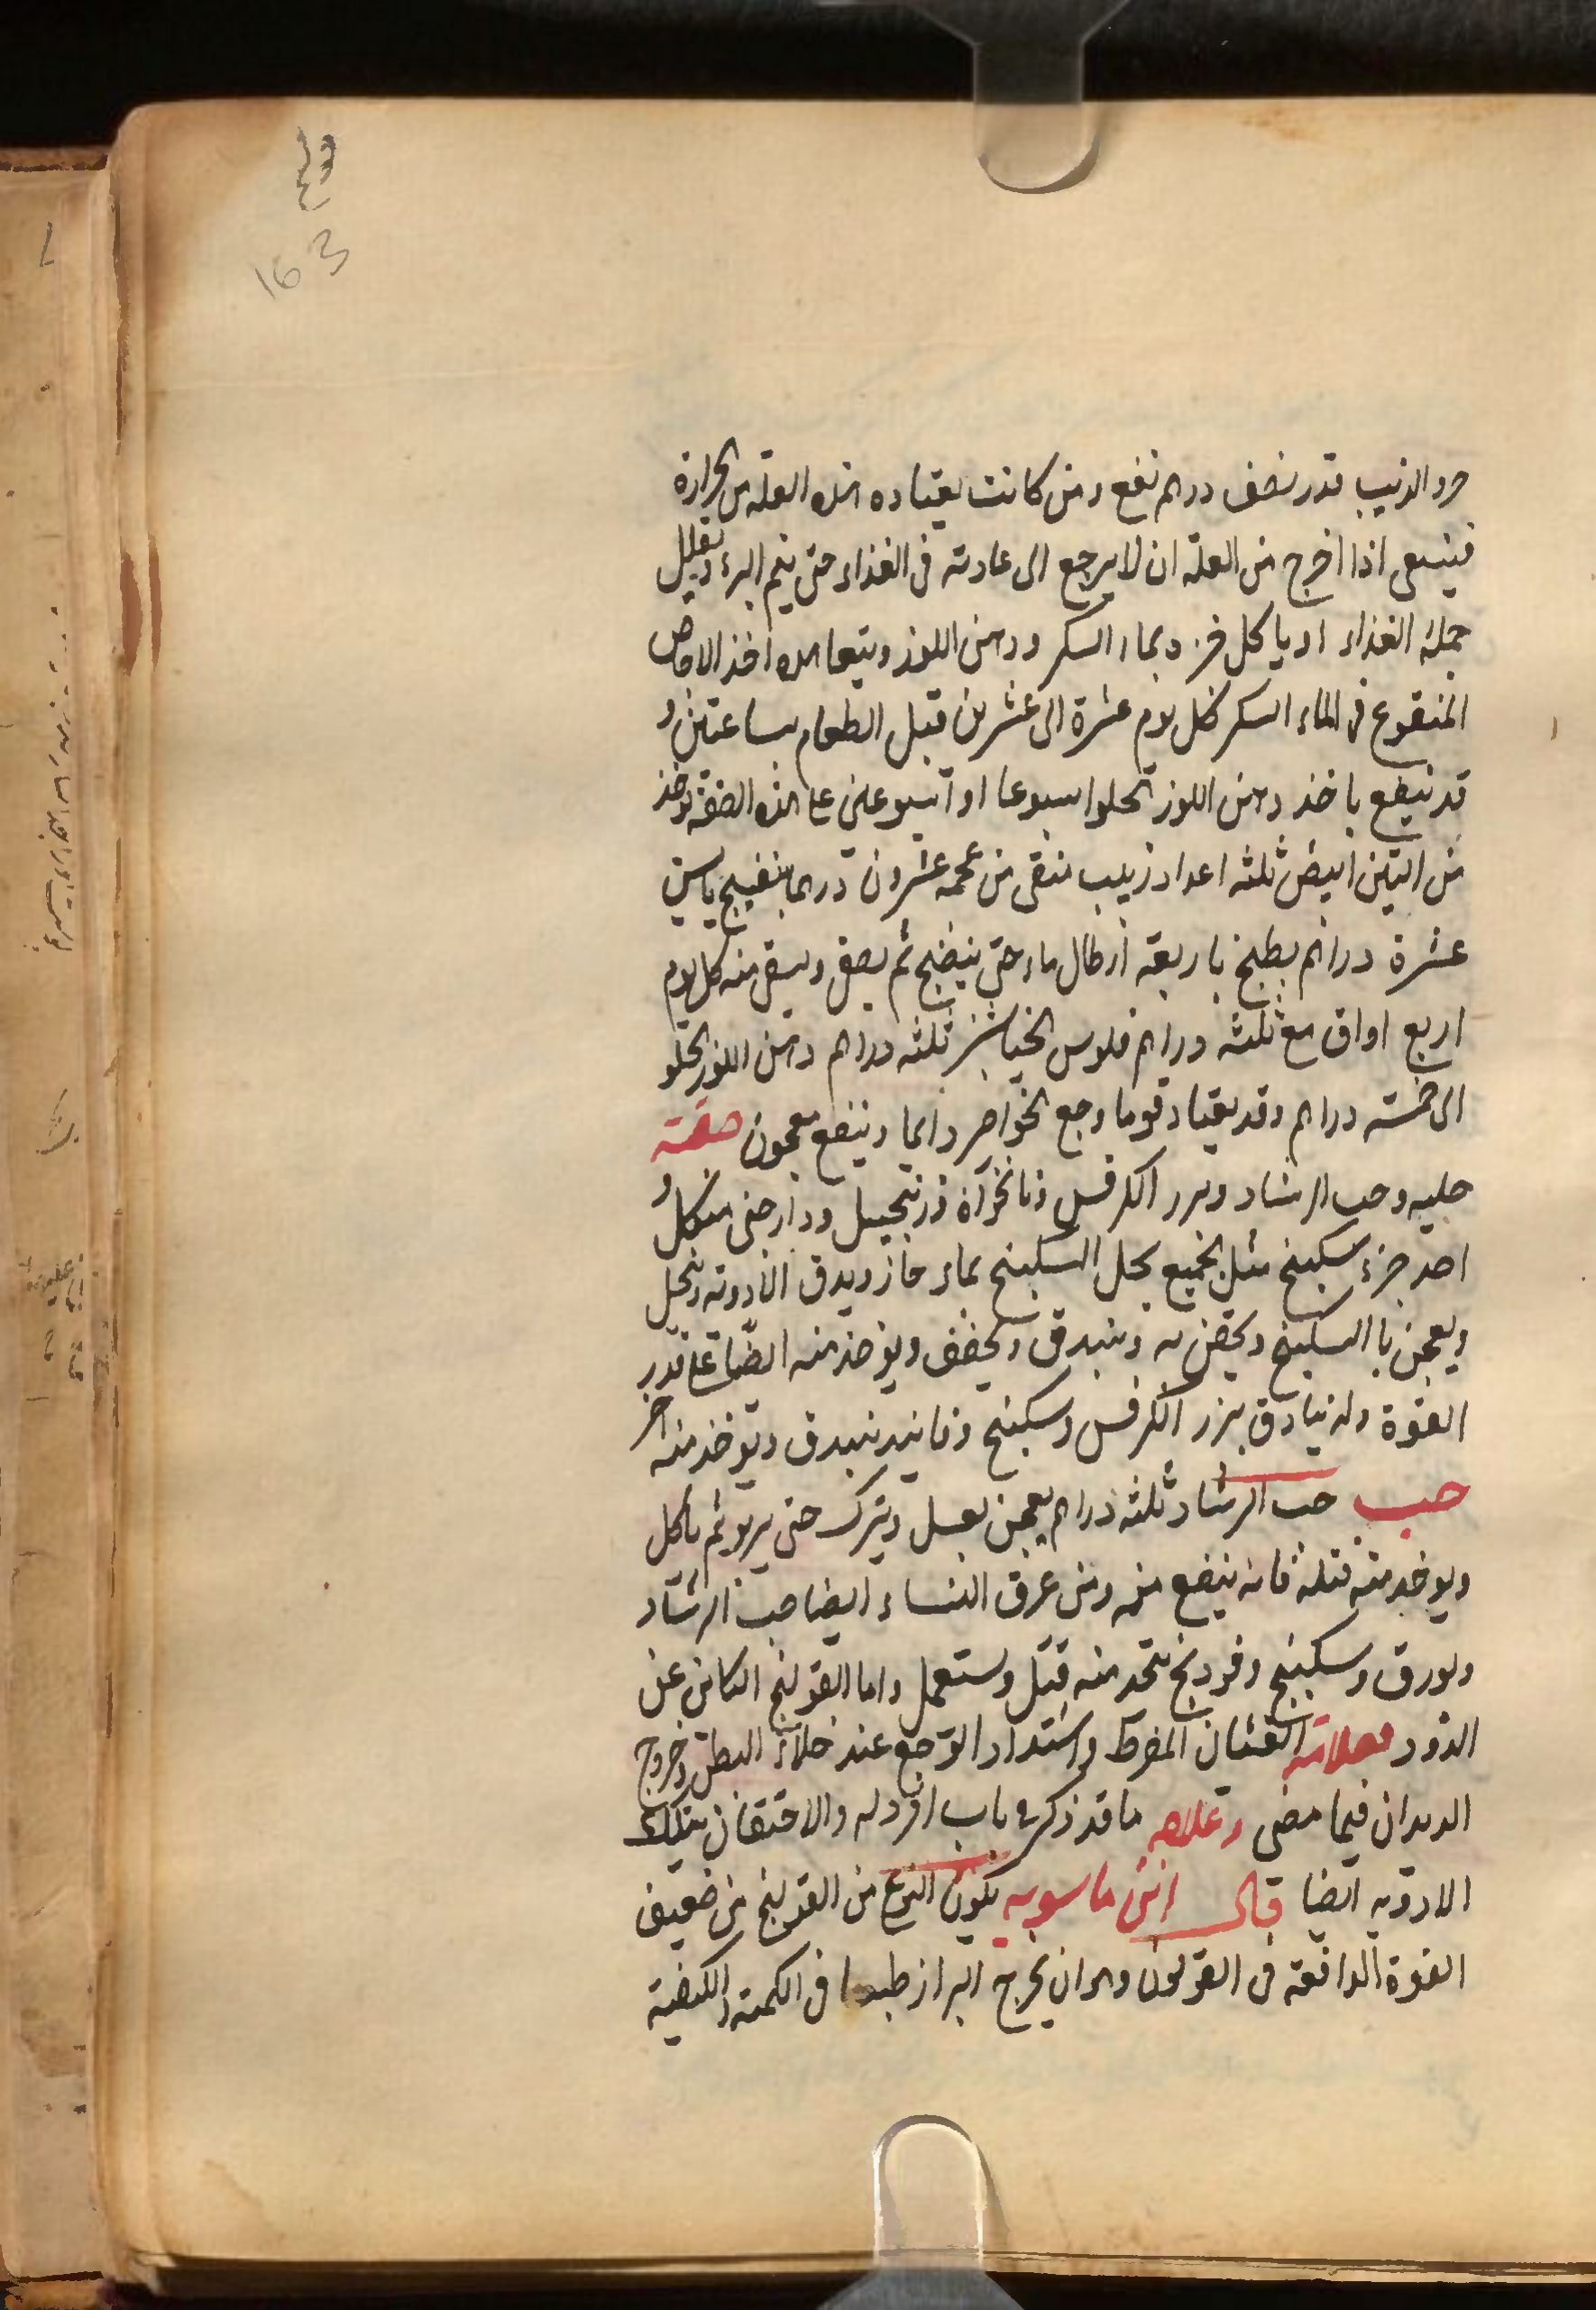 163
خرو الذيب قدر نصف درهم نفع ومن كانت يعتاده هذه العلة من الحرارة
فينبغي اذا اخرج من العلة ان لا يرجع الى عادته في الغذاء حتى يتم البرء وتقليل
جملة الغذاء او ياكل خبز وبماء السكر ودهن اللوز ويتعاهده اخذ الاجاص
المنقوع في الماء السكر كل يوم عشرة الى عشرين قبل الطعام بساعتين و
قد ينفع باخذ دهن اللوز الحلو اسبوعا او اسبوعين على هذه الصفة يوخذ
من التين ابيض ثلثة اعداد زبيب منقى من عجمه عشرون درهما بنفسج يابس
عشرة دراهم يطبخ باربعة ارطال ماء حتى ينضج ثم يصفى ويسقى منه كل يوم
اربع اواق مع ثلثة دراهم فلوس الخيارشنبر ثلثة دراهم دهن اللوز الحلو
الى خمسة دراهم وقد يعتاد قوما وجع الخواصر دايما وينفع معجون صفته
حلبه وحب الرشاد وبزر الكرفس ونانخواة وزنجبيل ودارصيني من كل و
احد جزء سكبينج مثل الجميع يحل السكبينج بماء حار ويدق الادوية وتنخل
ويعجن با السكبينج ويحقن به ويبندق ويجفف ويوخذ منه ايضا على قدر
القوة وله بنادق بزر الكرفس وسكبينج وفانيد يبندق ويوخذ منه اخر
حب حب الرشاد ثلثة دراهم يعجن بعسل ويترك حتى يربو ثم ياكل
ويوخذ منه فتلة فانه ينفع منه ومن عرق النساء ايضا حب الرشاد
وبورق وسكبينج وفودنج يتخذ منه فتل ويستعمل واما القولنج الكائن عن
الدود فعلامته الغثيان المفرط واشتداد الوجع عند خلاء البطن وخروج
الديدان فيما مضى وعلاجه ما قد ذكر في باب افرد له والاحتقان بتلك
الادويه ايضا قال ابن ماسويه يكون النوع من القولنج من ضعيف
القوة الدافعة في القولون وهو ان يخرج البراز طبيعيا في الكمية والكيفية